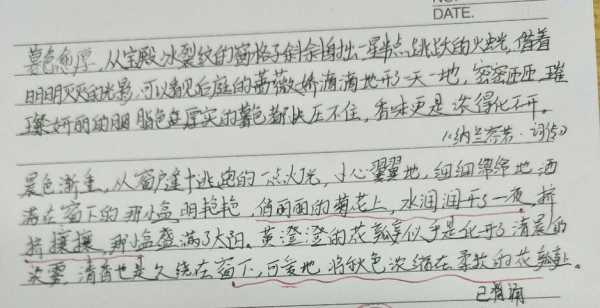 DATE.
暮色愈厚,从宝殿冰裂纹的窗格子斜斜射出一星半点跳跃的火光,借着
明明灭灭的光影,可以看见后庭的蔷薇娇滴滴地开了一天一地,密密匝匝,璀
璨妍丽的胭脂色连厚实的暮色都快压不住,香味更是浓得化不开。
《纳兰容若·词传》
暮色渐重,从窗户缝中逃跑的一点火光,小心翼翼地,细细绵绵地洒
落在窗下的那小盆明艳艳,俏丽丽的菊花上,水润润开了一夜,挤
挤攘攘,那小盆盛满了太阳。黄澄澄的花瓣似乎是化开了清晨的
浓雾,清香也是久绕在窗下,可爱地将秋色浓缩在柔软的花瓣上。
已背诵